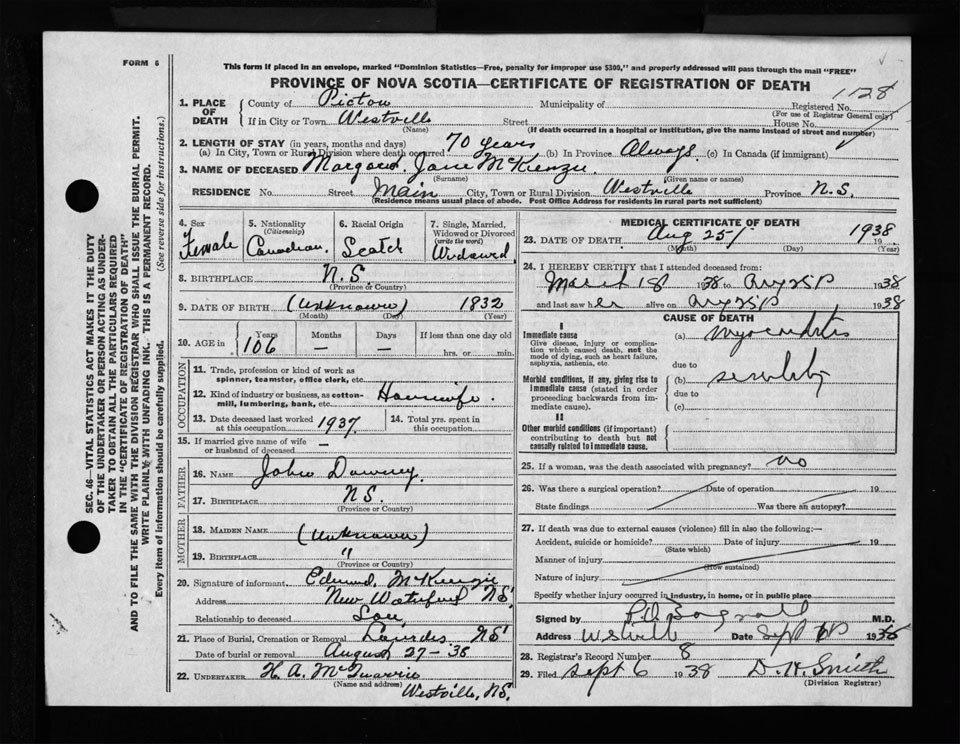 FORM 6
This form if placed in an envelope, marked "Dominion Statistics—Free, penalty for improper use $300," and properly addressed will pass through the mail "FREE"
PROVINCE OF NOVA SCOTIA—CERTIFICATE OF REGISTRATION OF DEATH
1128
SEC. 46—VITAL STATISTICS ACT MAKES IT THE DUTY
OF THE UNDERTAKER OR PERSON ACTING AS UNDER-
TAKER TO OBTAIN ALL THE PARTICULARS REQUIRED
IN THE "CERTIFICATE OF REGISTRATION OF DEATH"
AND TO FILE THE SAME WITH THE DIVISION REGISTRAR WHO SHALL ISSUE THE BURIAL PERMIT.
WRITE PLAINLY WITH UNFADING INK. THIS IS A PERMANENT RECORD.
Every item of information should be carefully supplied. (See reverse side for instructions.)
1. PLACE OF DEATH
County of Pictou Municipality of Registered No.
(For use of Registrar General only)
If in City or Town Westville Street House No.
(Name) (If death occurred in a hospital or institution, give the name instead of street and number)
2. LENGTH OF STAY (in years, months and days)
(a) In City, Town or Rural Division where death occurred 70 years (b) In Province Always (c) In Canada (if immigrant)
3. NAME OF DECEASED Margaret Jane McKenzie.
(Surname) (Given name or names)
RESIDENCE No. Street Main City, Town or Rural Division Westville Province N.S.
(Residence means usual place of abode. Post Office Address for residents in rural parts not sufficient)
4. Sex
Female
5. Nationality
(Citizenship)
Canadian
6. Racial Origin
Scotch
7. Single, Married,
Widowed or Divorced
(write the word)
Widowed
8. BIRTHPLACE N.S.
(Province or Country)
9. DATE OF BIRTH (Unknown) 1832
(Month) (Day) (Year)
10. AGE in
Years Months Days If less than one day old
106 — — hrs. or min.
OCCUPATION
11. Trade, profession or kind of work as
spinner, teamster, office clerk, etc.
12. Kind of industry or business, as cotton-
mill, lumbering, bank, etc. Housewife.
13. Date deceased last worked
at this occupation 1937.
14. Total yrs. spent in
this occupation
15. If married give name of wife
or husband of deceased —
FATHER
16. NAME John Downey.
17. BIRTHPLACE NS.
(Province or Country)
MOTHER
18. MAIDEN NAME (Unknown)
19. BIRTHPLACE "
(Province or Country)
20. Signature of informant Edmund McKenzie
Address New Waterford NS.
Relationship to deceased Son
21. Place of Burial, Cremation or Removal Lourdes NS
Date of burial or removal August 27-38
22. UNDERTAKER H. A. McQuarrie
(Name and address)
Westville, NS.
MEDICAL CERTIFICATE OF DEATH
23. DATE OF DEATH Aug 25 1938 19
(Month) (Day) (Year)
24. I HEREBY CERTIFY that I attended deceased from:
March 1st 1938 to Aug 25 1938
and last saw her alive on Aug 25 1938
CAUSE OF DEATH
I
Immediate cause
Give disease, injury or complica-
tion which caused death, not the
mode of dying, such as heart failure,
asphyxia, asthenia, etc.
(a) myocarditis
due to
Morbid conditions, if any, giving rise to
immediate cause (stated in order
proceeding backwards from im-
mediate cause).
(b) senility
due to
(c)
II
Other morbid conditions (if important)
contributing to death but not
causally related to immediate cause.
25. If a woman, was the death associated with pregnancy? no
26. Was there a surgical operation? Date of operation 19
State findings Was there an autopsy?
27. If death was due to external causes (violence) fill in also the following:—
Accident, suicide or homicide? Date of injury 19
(State which)
Manner of injury
(How sustained)
Nature of injury
Specify whether injury occurred in industry, in home, or in public place
Signed by Bagnall M.D.
Address Westville Date Sept 1938
28. Registrar's Record Number 8
29. Filed Sept 6 1938 D. H. Smith
(Division Registrar)